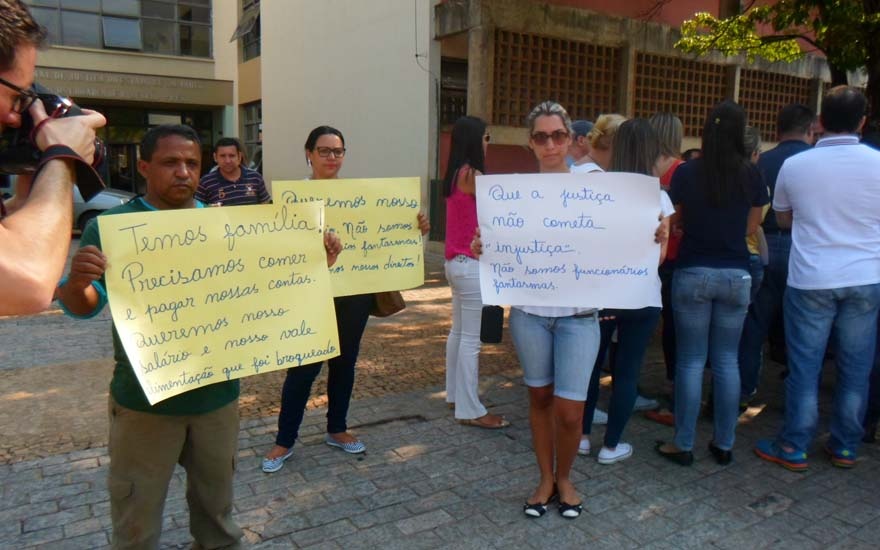 DE JUSTIÇA DO ESTADO DE
Temos família!
Precisamos comer
e pagar nossas contas.
Queremos nosso
salário e nosso vale
alimentação que foi broqueado
Queremos nosso
Não somos
fantasmas!
nossos direitos!
Que a justiça
não cometa
"injustiça".
Não somos funcionários
fantasmas.